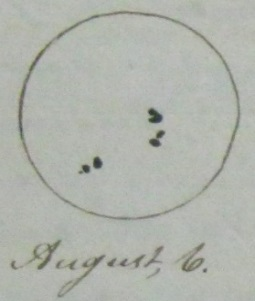 August, 6.